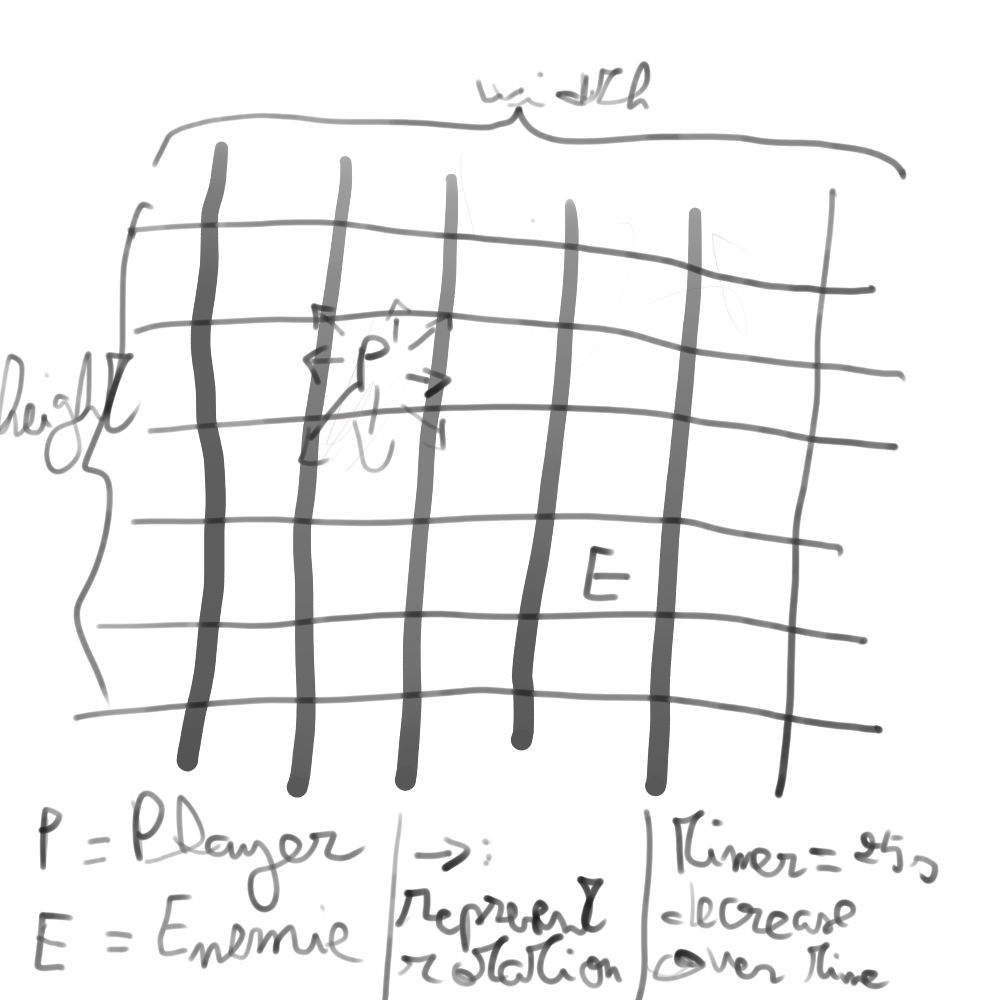 width
height
P
E
P = Player
E = Enemie
→ :
represent
rotation
Timer = 25s
decrease
over time